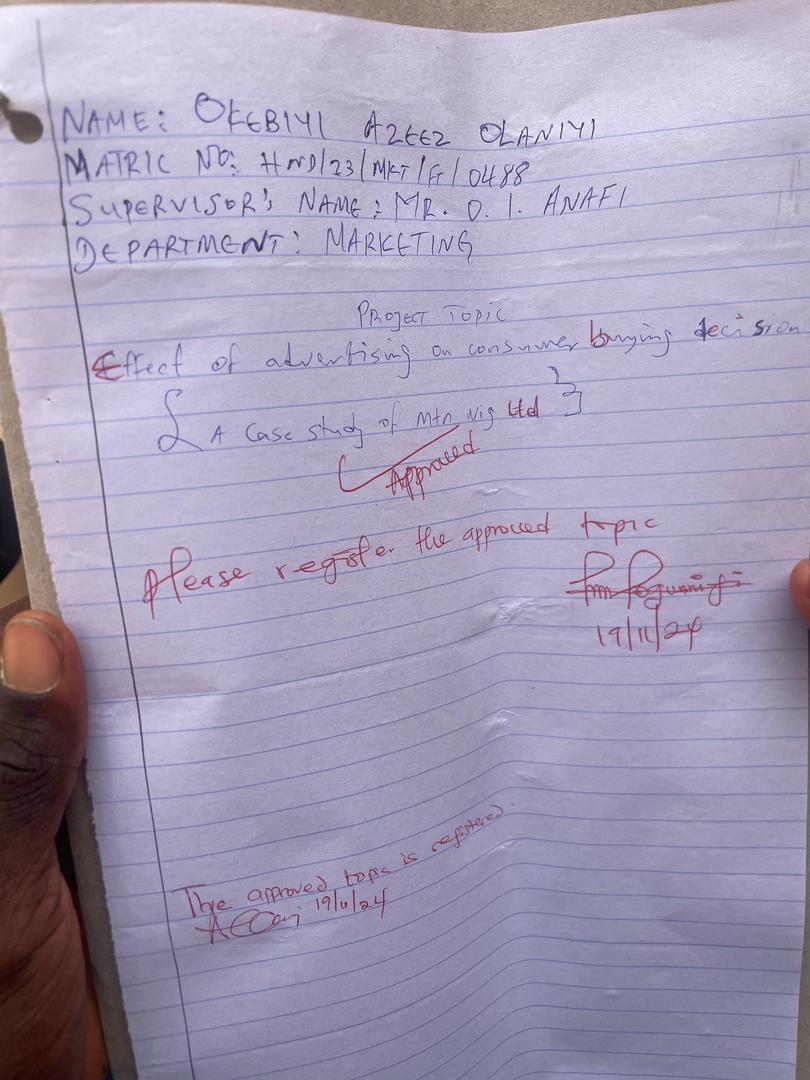 NAME: OKEBIYI AZEEZ OLANIYI
MATRIC NO: HND/23/MKT/F/0488
SUPERVISOR'S NAME: MR. O. I. ANAFI
DEPARTMENT: MARKETING
PROJECT TOPIC
Effect of advertising on consumer buying decision
{A case study of Mtn Nig Ltd}
Approved
Please register the approved topic
19/11/24
The approved topic is registered
19/11/24